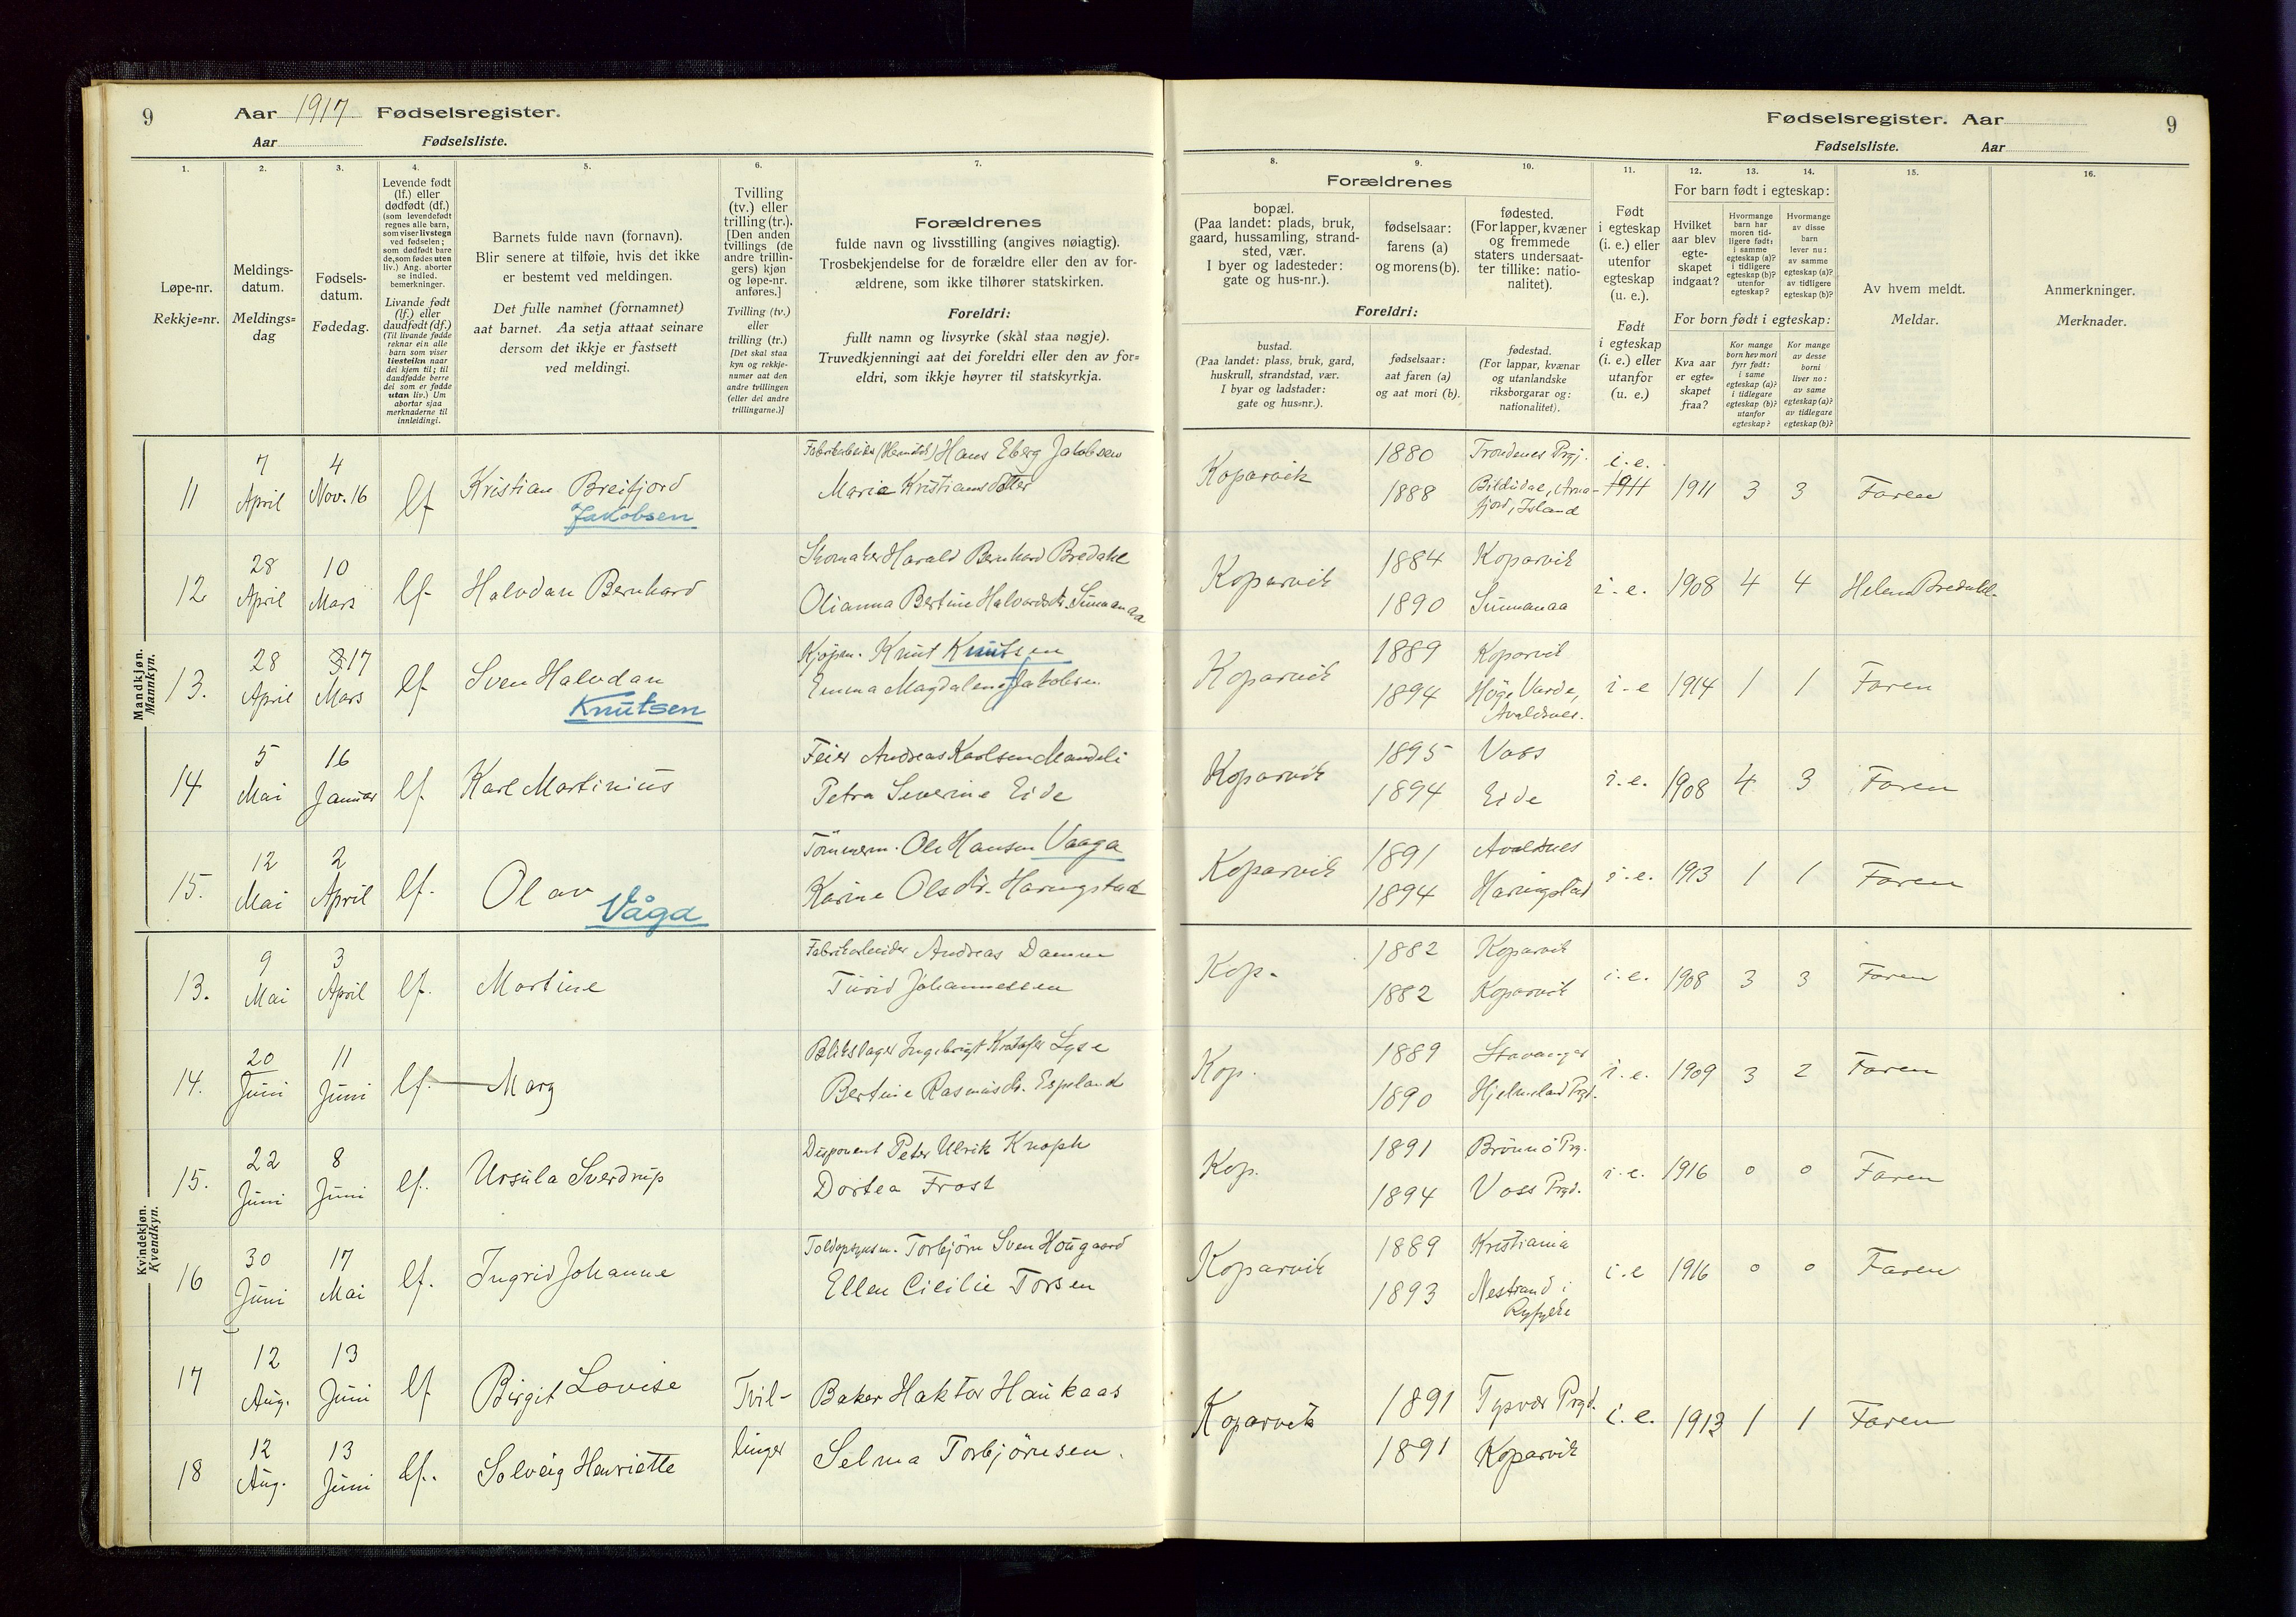 9 Aar 1917 Fødselsregister.
Aar Fødselsliste.
1. 2. 3. 4. 5. 6. 7.
Løpe-nr.
Rekkje=nr.
Meldings-
datum.
Meldings=
dag
Fødsels-
datum.
Fødedag.
Levende født
(lf.) eller
dødfødt (df.)
(som levendefødt
regnes alle barn,
som viser livstegn
ved fødselen;
som dødfødt bare
de, som fødes uten
liv.) Ang. aborter
se indled.
bemerkninger.
Livande født
(lf.) eller
daudfødt (df.)
(Til livande fødde
reknar ein alle
barn som viser
livsteikn naar
dei kjem til; til
daudfødde berre
dei som er fødde
utan liv.) Um
abortar sjaa
merknaderne til
innleidingi.
Barnets fulde navn (fornavn).
Blir senere at tilføie, hvis det ikke
er bestemt ved meldingen.
Det fulle namnet (fornamnet)
aat barnet. Aa setja attaat seinare
dersom det ikkje er fastsett
ved meldingi.
Tvilling
(tv.) eller
trilling (tr.).
[Den anden
tvillings (de
andre trillin-
gers) kjøn
og løpe-nr.
anføres.]
Tvilling (tv.)
eller
trilling (tr.)
[Det skal staa
kyn og rekkje-
numer aat den
andre tvillingen
(eller dei andre
trillingarne.)]
Forældrenes
fulde navn og livsstilling (angives nøiagtig).
Trosbekjendelse for de forældre eller den av for-
ældrene, som ikke tilhører statskirken.
Foreldri:
fullt namn og livsyrke (skàl staa nøgje).
Truvedkjenningi aat dei foreldri eller den av for=
eldri, som ikkje høyrer til statskyrkja.
Mandkjøn.
Mannkyn.
11 7 April 4 Nov. 16 lf Kristian Breifjord
Jakobsen
Hans Eberg Jakobsen
Marie Kristiansdotter
12 28 April 10 Mars lf Halvdan Bernhard
Skomaker Harald Bernhard Bredahl
Olianna Bertine Halvardsdtr. Sunnanaa
13. 28 April 17 Mars lf Sven Halvdan
Knutsen
Kjøpm. Knut Knutsen
Emma Magdalene Jakobsen
14 5 Mai 16 Januar lf Karl Martinius
Feier Andreas Karlsen Mandeli
Petra Severine Eide
15. 12 Mai 2 April lf. Olav
Våga
Tömmerm. Ole Hansen Vaaga
Karine Olsdtr. Haringstad
Kvindekjøn.
Kvendkyn.
13. 9 Mai 3 April lf. Martine
Fabrikarbeider Andreas Damm
Turid Johannessen
14. 20 Juni 11 Juni lf. Mary
Blikslager Ingebrigt Kristofer Lyse
Bertine Rasmusdtr. Espeland
15. 22 Juni 8 Juni lf. Ursula Sverdrup
Disponent Peter Ulrik Knoph
Dortea Frost
16 30 Juni 17 Mai lf. Ingrid Johanne
Toldopsynsm. Torbjörn Sven Hougaard
Ellen Cicilie Torsen
17 12 Aug. 13 Juni lf Birgit Lovise Tvil- Baker Haktor Haukaas
18 12 Aug. 13 Juni lf. Solveig Henriette linger Selma Torbjörnsen.
Fødselsregister. Aar 9
Fødselsliste. Aar
8. 9. 10. 11. 12. 13. 14. 15. 16.
Forældrenes
bopæl.
(Paa landet: plads, bruk,
gaard, hussamling, strand-
sted, vær.
I byer og ladesteder:
gate og hus-nr.).
fødselsaar:
farens (a)
og morens (b).
fødested.
(For lapper, kvæner
og fremmede
staters undersaat-
ter tillike: natio-
nalitet).
Foreldri:
bustad.
(Paa landet: plass, bruk, gard,
huskrull, strandstad, vær.
I byar og ladstader:
gate og hus=nr.).
fødselsaar:
aat faren (a)
og aat mori (b).
fødestad.
(For lappar, kvænar
og utanlandske
riksborgarar og:
nationalitet).
Født
i egteskap
(i. e.) eller
utenfor
egteskap
(u. e.).
Født
i egteskap
(i. e.) eller
utanfor
(u. e.)
For barn født i egteskap:
Hvilket
aar blev
egte-
skapet
indgaat?
Hvormange
barn har
moren tid-
ligere født:
i samme
egteskap (a)?
i tidligere
egteskap (b)?
utenfor
egteskap?
Hvormange
av disse
barn
lever nu:
av samme
egteskap (a)?
av tidligere
egteskap (b)?
For born født i egteskap:
Kva aar
er egte=
skapet
fraa?
Kor mange
born hev mori
fyrr født:
i same
egteskap (a)?
i tidlegare
egteskap (b)?
utanfor
egteskap?
Kor mange
av desse
borni
liver no:
av same
egteskap (a)?
av tidlegare
egteskap (b)?
Av hvem meldt.
Meldar.
Anmerkninger.
Merknader.
Koparvik 1880 Trondenes Prgj. i. e. 1911
1888 Bildudae, Arna-
fjord, Island 1911 3 3 Faren
Koparvik 1884 Koparvik
1890 Sunnanaa i. e. 1908 4 4 Helene Bredahl.
Koparvik 1889 Koparvik
1894 Høge Varde,
Avaldsnes. i-e 1914 1 1 Faren
Koparvik 1895 Voss
1894 Eide i.e. 1908 4 3 Faren
Koparvik 1891 Avaldsnes
1894 Haringstad i.e. 1913 1 1 Faren
Kop. 1882 Koparvik
1882 Koparvik i.e. 1908 3 3 Faren
Kop. 1889 Stavanger
1890 Hjelmeland Prgd. i.e. 1909 3 2 Faren
Kop. 1891 Brönnö Prg.
1894 Voss Prgd. i.e. 1916 0 0 Faren
Koparvik 1889 Kristiania
1893 Nestrand i
Ryfylke i.e 1916 0 0 Faren
Koparvik 1891 Tysvær Prgd.
1891 Koparvik i.e. 1913 1 1 Faren